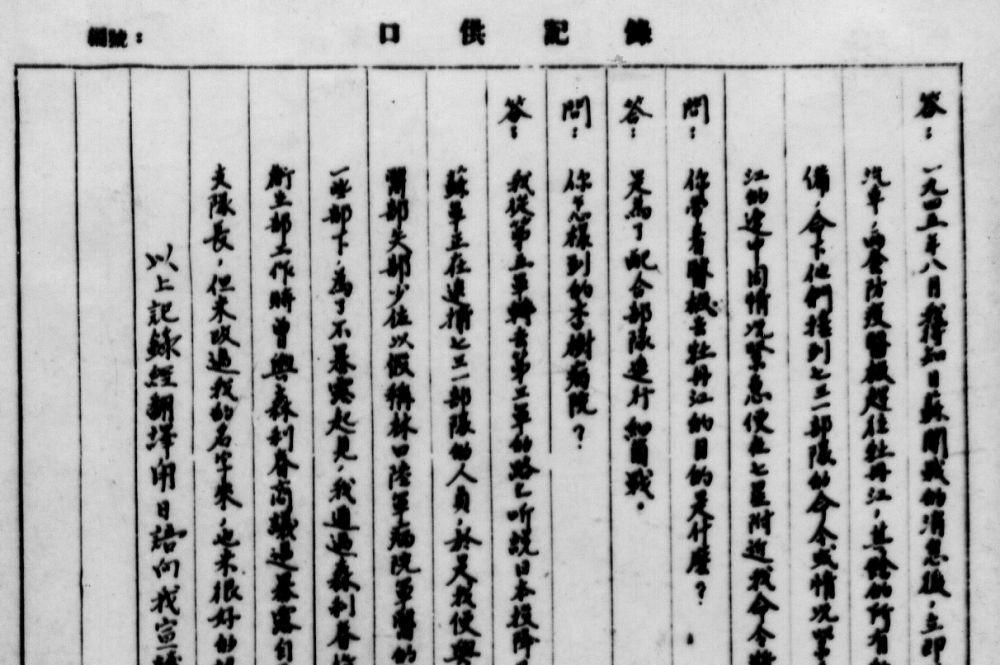 口供記錄
編號：
答：一九四五年八月獲知日蘇開戰的消息後，立即
汽車，携防疫醫機趕往牡丹江，其餘的所有
備，命卞他們接到七三一部隊的命令或情况緊
江的途中因情况緊急便在七星附近我命令
問：你帶着醫機去牡丹江的目的是什麽？
答：是爲了配合部隊進行細菌戰。
問：你怎樣到的李樹病院？
答：我從第五軍轉去第三軍的路上听説日本投降
蘇軍正在追捕七三一部隊的人員，於是我便與
醫部 部少佐以假稱林口陸軍病院軍醫的
一些部下，爲了不暴露起見，我通過森利春
衛生部工作時曾與森利春商議過暴露自
支隊長，但未改過我的名字來，也未很好的
以上記錄經翻譯用日語向我宣